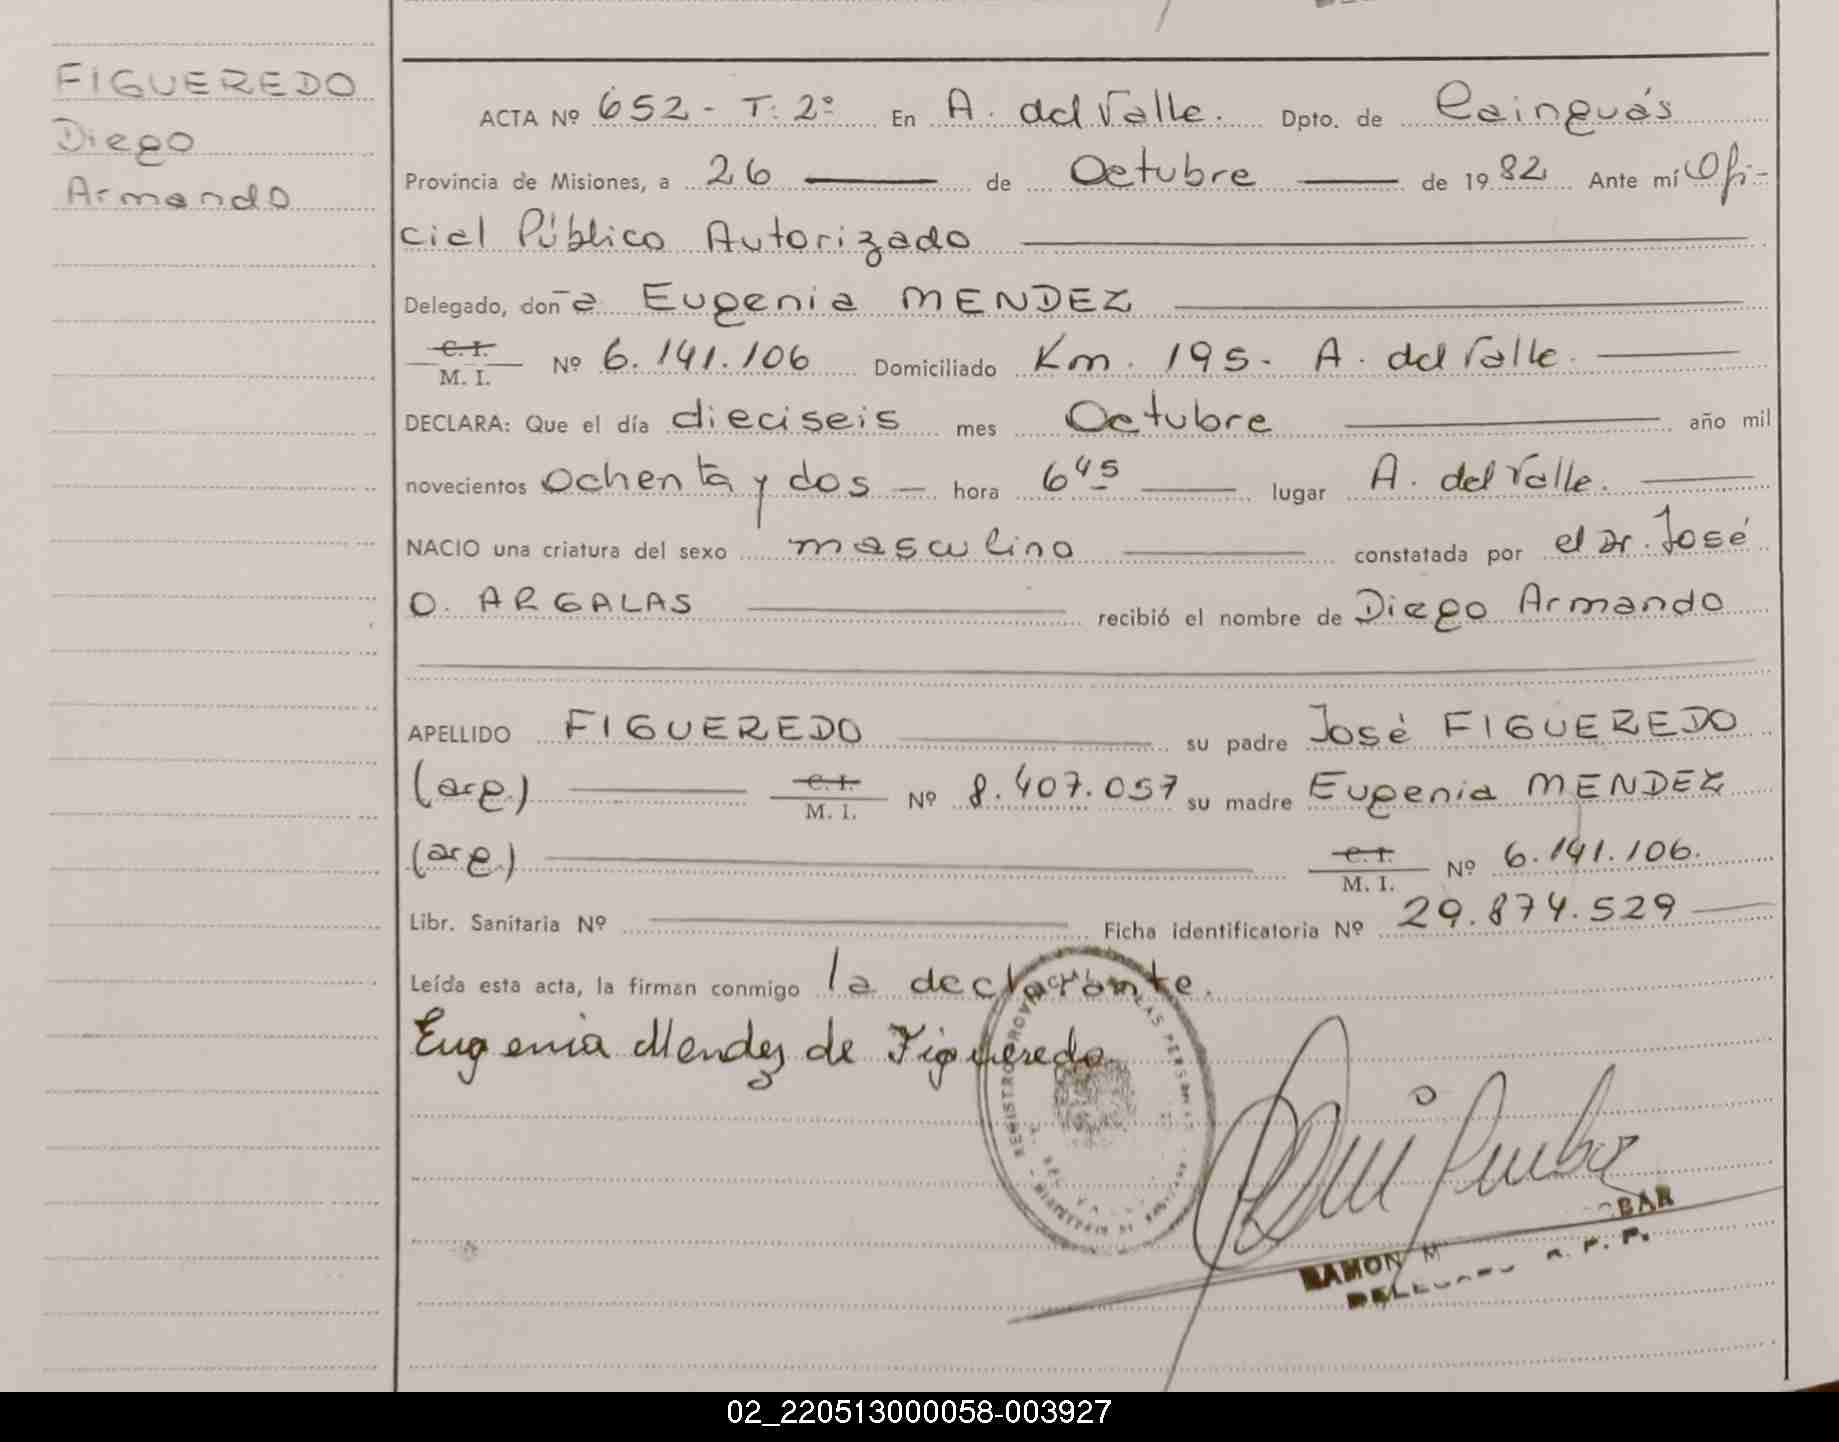 FIGUEREDO
Diego
Armando
ACTA Nº 652 - T: 2º En A. del Valle. Dpto. de Cainguás
Provincia de Misiones, a 26 de Octubre de 1982 Ante mí Ofi-
cial Público Autorizado
Delegado, doña Eugenia MENDEZ
C. I.
M. I. Nº 6.141.106 Domiciliado Km. 195 - A. del Valle.
DECLARA: Que el día dieciseis mes Octubre año mil
novecientos ochenta y dos hora 6 45 lugar A. del Valle.
NACIO una criatura del sexo masculino constatada por el Dr. José
O. ARGALAS recibió el nombre de Diego Armando
APELLIDO FIGUEREDO su padre José FIGUEREDO
(arg.) C. I. M. I. Nº 8.407.057 su madre Eugenia MENDEZ
(arg.) C. I. M. I. Nº 6.141.106.
Libr. Sanitaria Nº Ficha identificatoria Nº 29.874.529
Leída esta acta, la firman conmigo la declarante.
Eugenia Mendez de Figueredo
RAMON M
02_220513000058-003927